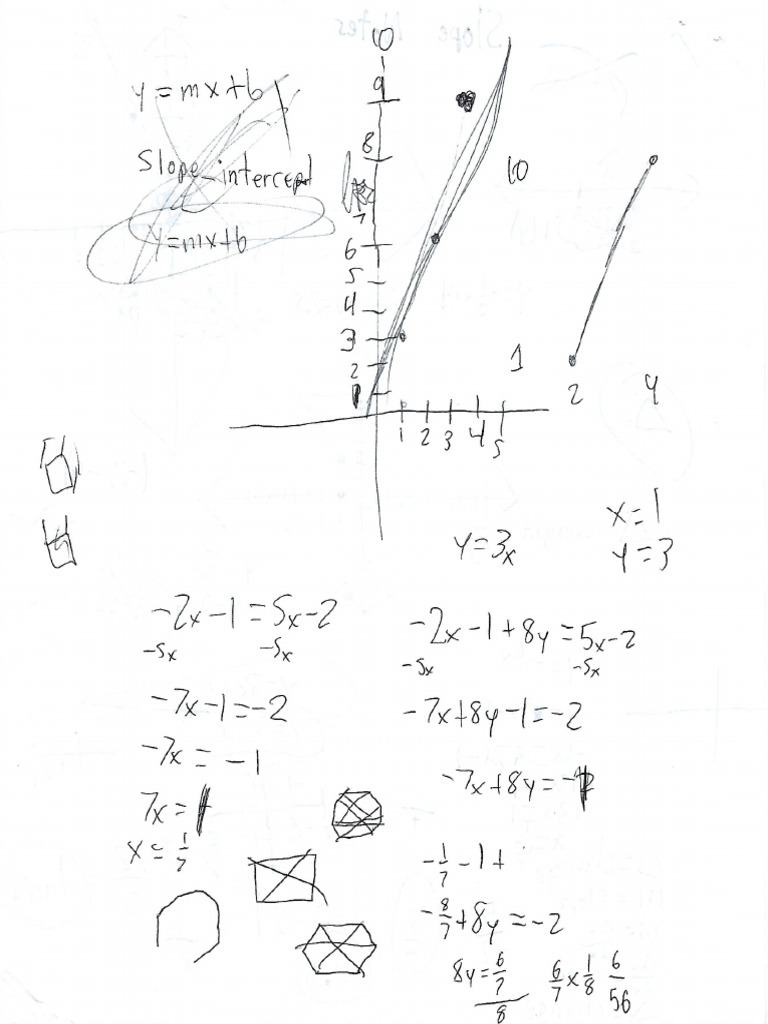 Slope Notes
y=mx+b
Slope-intercept
y=mx+b
10
9
8
7
6
5
4
3
2
1
1 2 3 4 5
10
1
2 4
y=3x
x=1
y=3
-2x-1=5x-2
-5x -5x
-7x-1=-2
-7x=-1
7x=1
x=1/7
-2x-1+8y=5x-2
-5x -5x
-7x+8y-1=-2
-7x+8y=-1
-1/7-1+
-8/7+8y=-2
8y=6/7
8
6/7x1/8 6/56